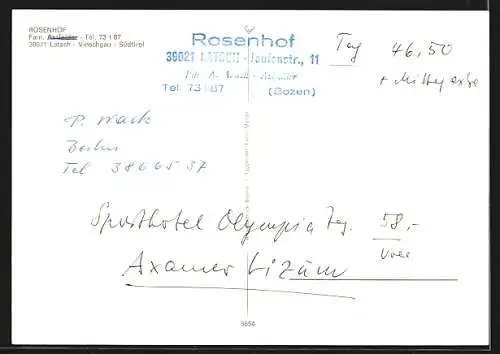 ROSENHOF
Fam. - Tel. 73 1 87
39021 Latsch - Vinschgau - Südtirol
Rosenhof
39021 LATSCH - 11
Tel. 73187 (Bozen)
Tag 46,50
+ Mittag extra
P. Wack
Berlin
Tel 3866537
Sporthotel Olympia Tag. 58,-
Axamer Lizum
9654